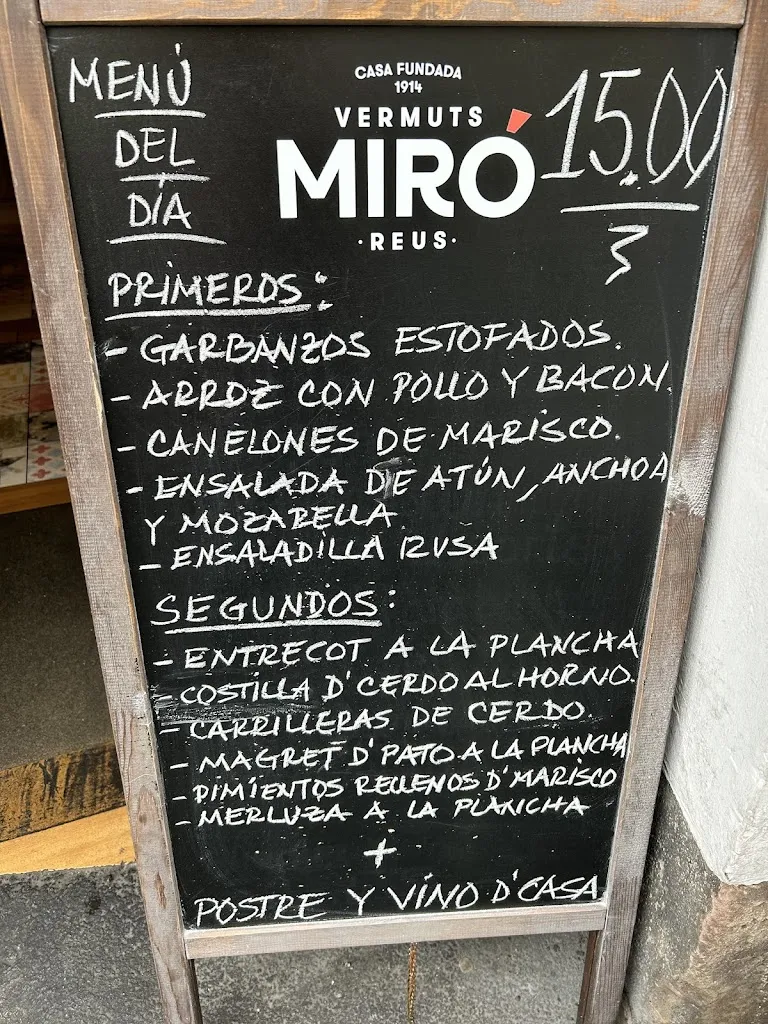 MENÚ
DEL
DÍA
CASA FUNDADA
1914
VERMUTS
MIRÓ
·REUS·
15.00
PRIMEROS:
- GARBANZOS ESTOFADOS.
- ARROZ CON POLLO Y BACON.
- CANELONES DE MARISCO.
- ENSALADA DE ATÚN, ANCHOA
Y MOZARELLA
- ENSALADILLA RUSA
SEGUNDOS:
- ENTRECOT A LA PLANCHA
- COSTILLA D'CERDO AL HORNO.
- CARRILLERAS DE CERDO.
- MAGRET D'PATO A LA PLANCHA
- PIMIENTOS RELLENOS D'MARISCO
- MERLUZA A LA PLANCHA
+
POSTRE Y VINO D'CASA